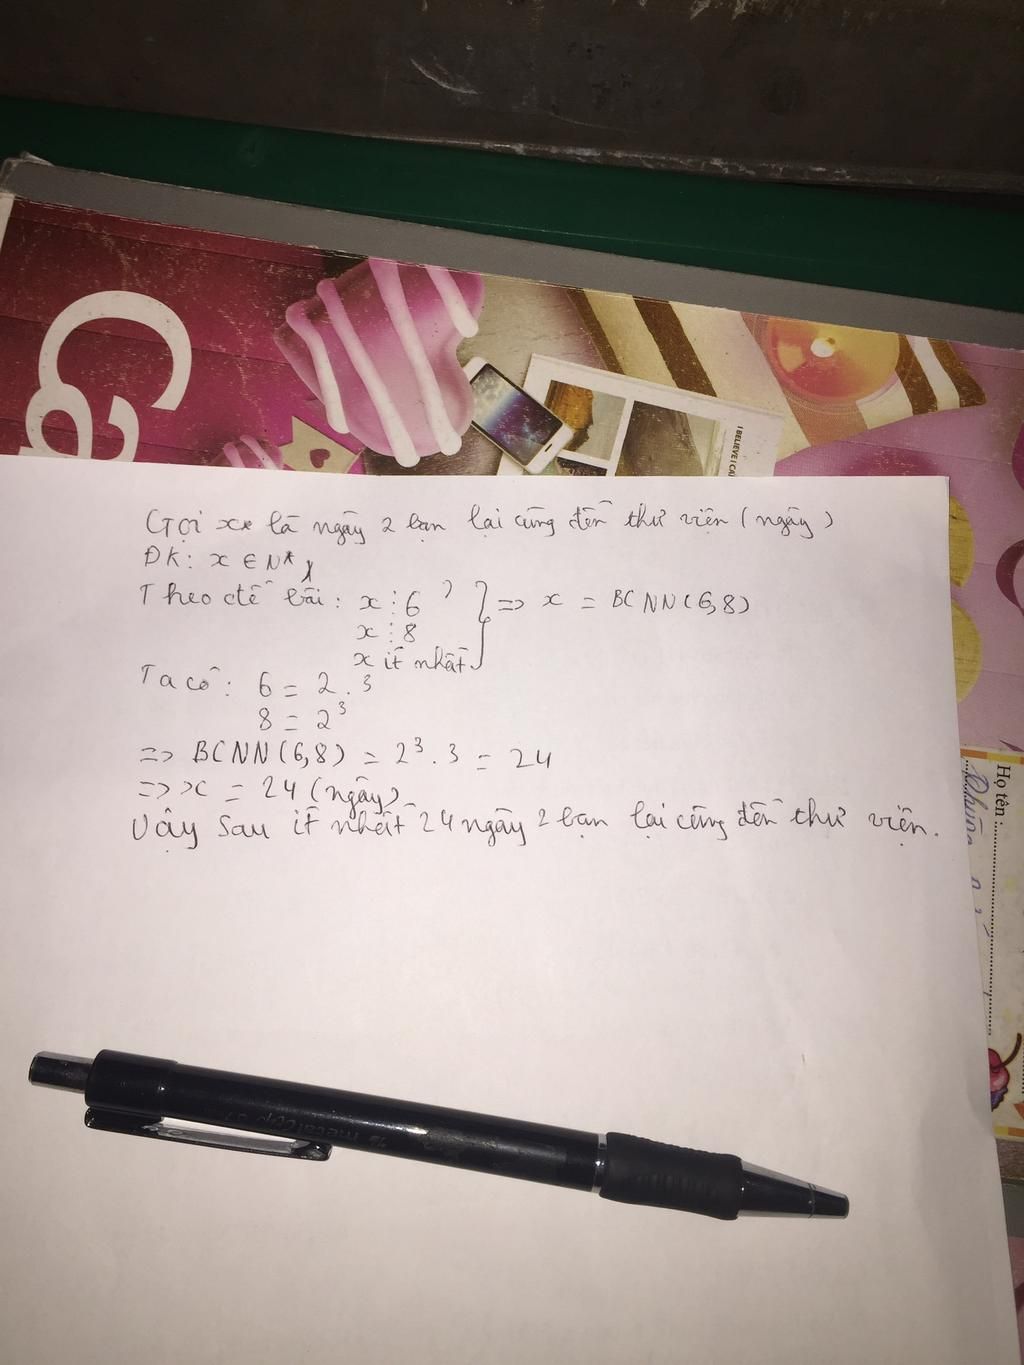 Ca
I BELIEVE I CA
Họ tên:
Gọi x là ngày 2 bạn lại cùng đến thư viện (ngày)
ĐK: x ∈ N*
Theo đề bài: x ⋮ 6
x ⋮ 8 } => x = BCNN(6,8)
x ít nhất
Ta có: 6 = 2.3
8 = 2³
=> BCNN(6,8) = 2³.3 = 24
=> x = 24 (ngày)
Vậy sau ít nhất 24 ngày 2 bạn lại cùng đến thư viện.